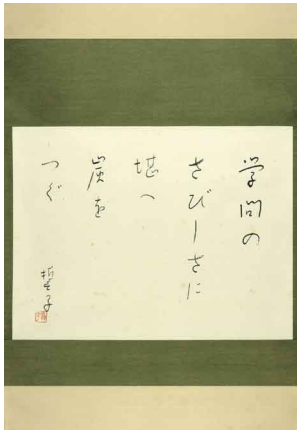 学問の
さびしさに
堪へ
炭を
つぐ
誓子